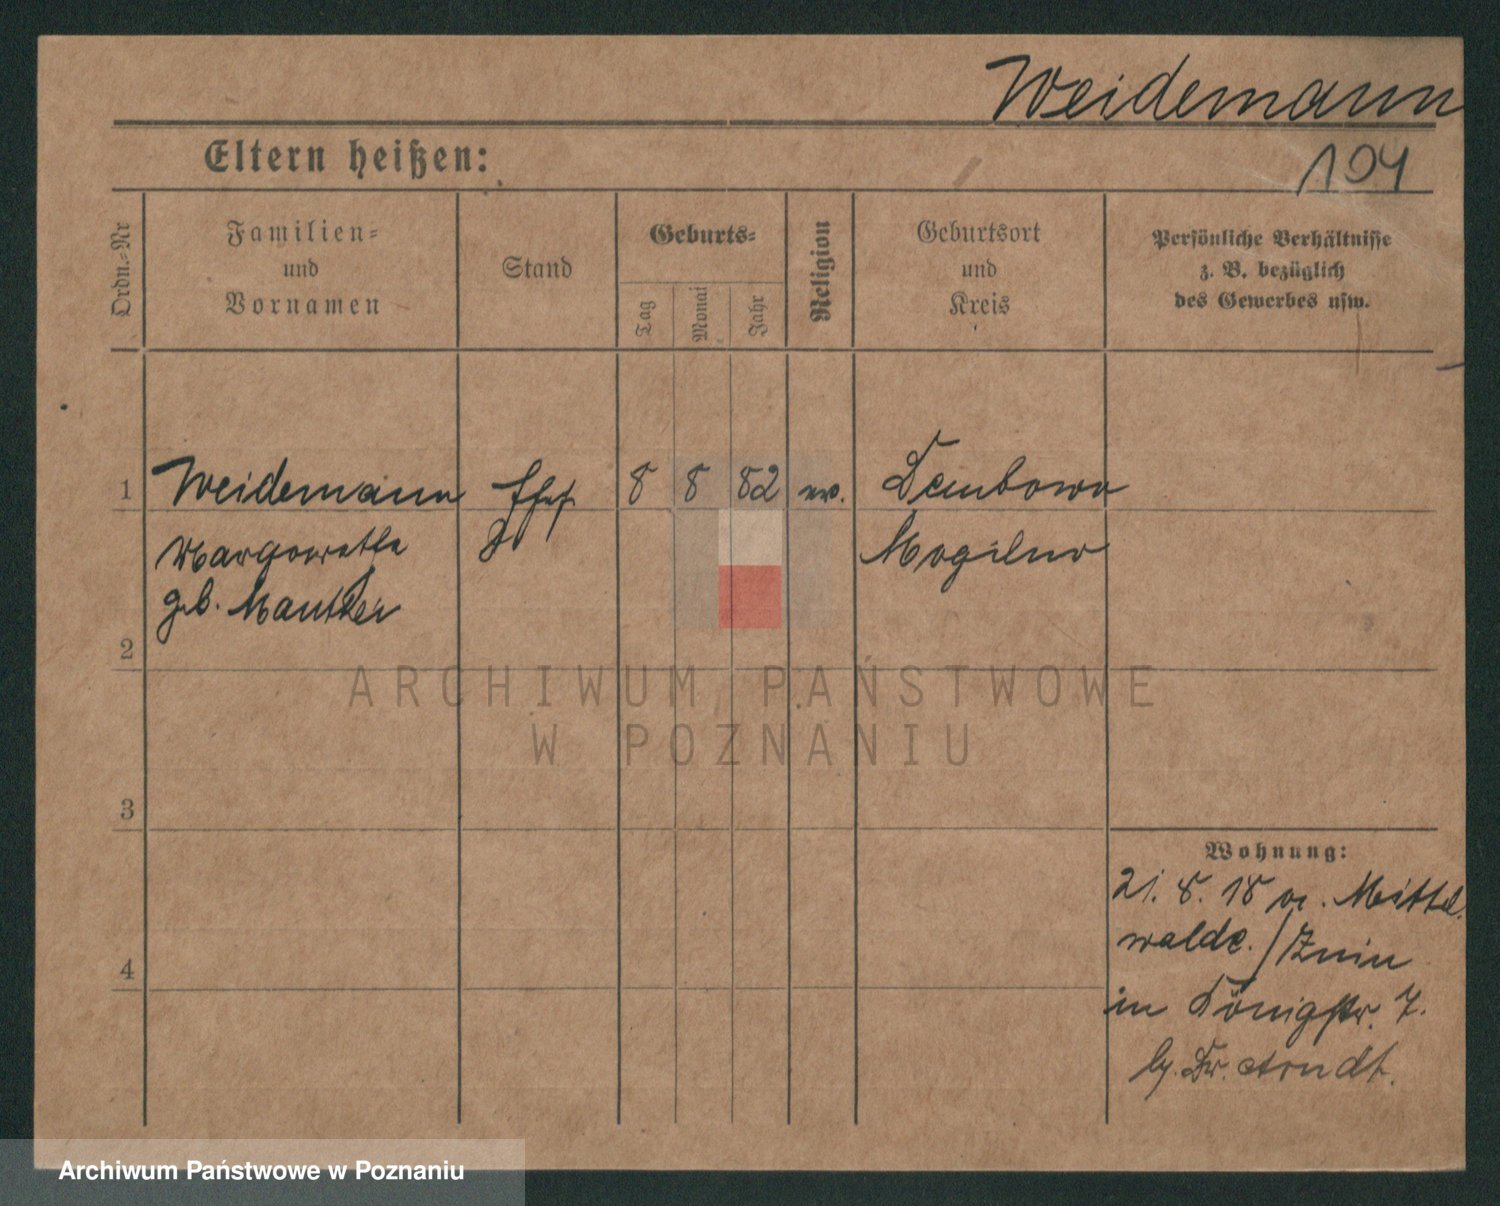 Weidemann
Eltern heißen:
194
Ordn.-Nr
Familien-
und
Vornamen
Stand
Geburts-
Tag
Monat
Jahr
Religion
Geburtsort
und
Kreis
Persönliche Verhältnisse
z. B. bezüglich
des Gewerbes usw.
1 Weidemann 8 8 82 ev. Dembowo
Margarethe Mogilno
geb. Manthei
2
ARCHIWUM PAŃSTWOWE
W POZNANIU
3
Wohnung:
21. 8. 18 v. Mittel
walde. / Znin
4
in Königstr. 7.
by. Fr. Arndt.
Archiwum Państwowe w Poznaniu